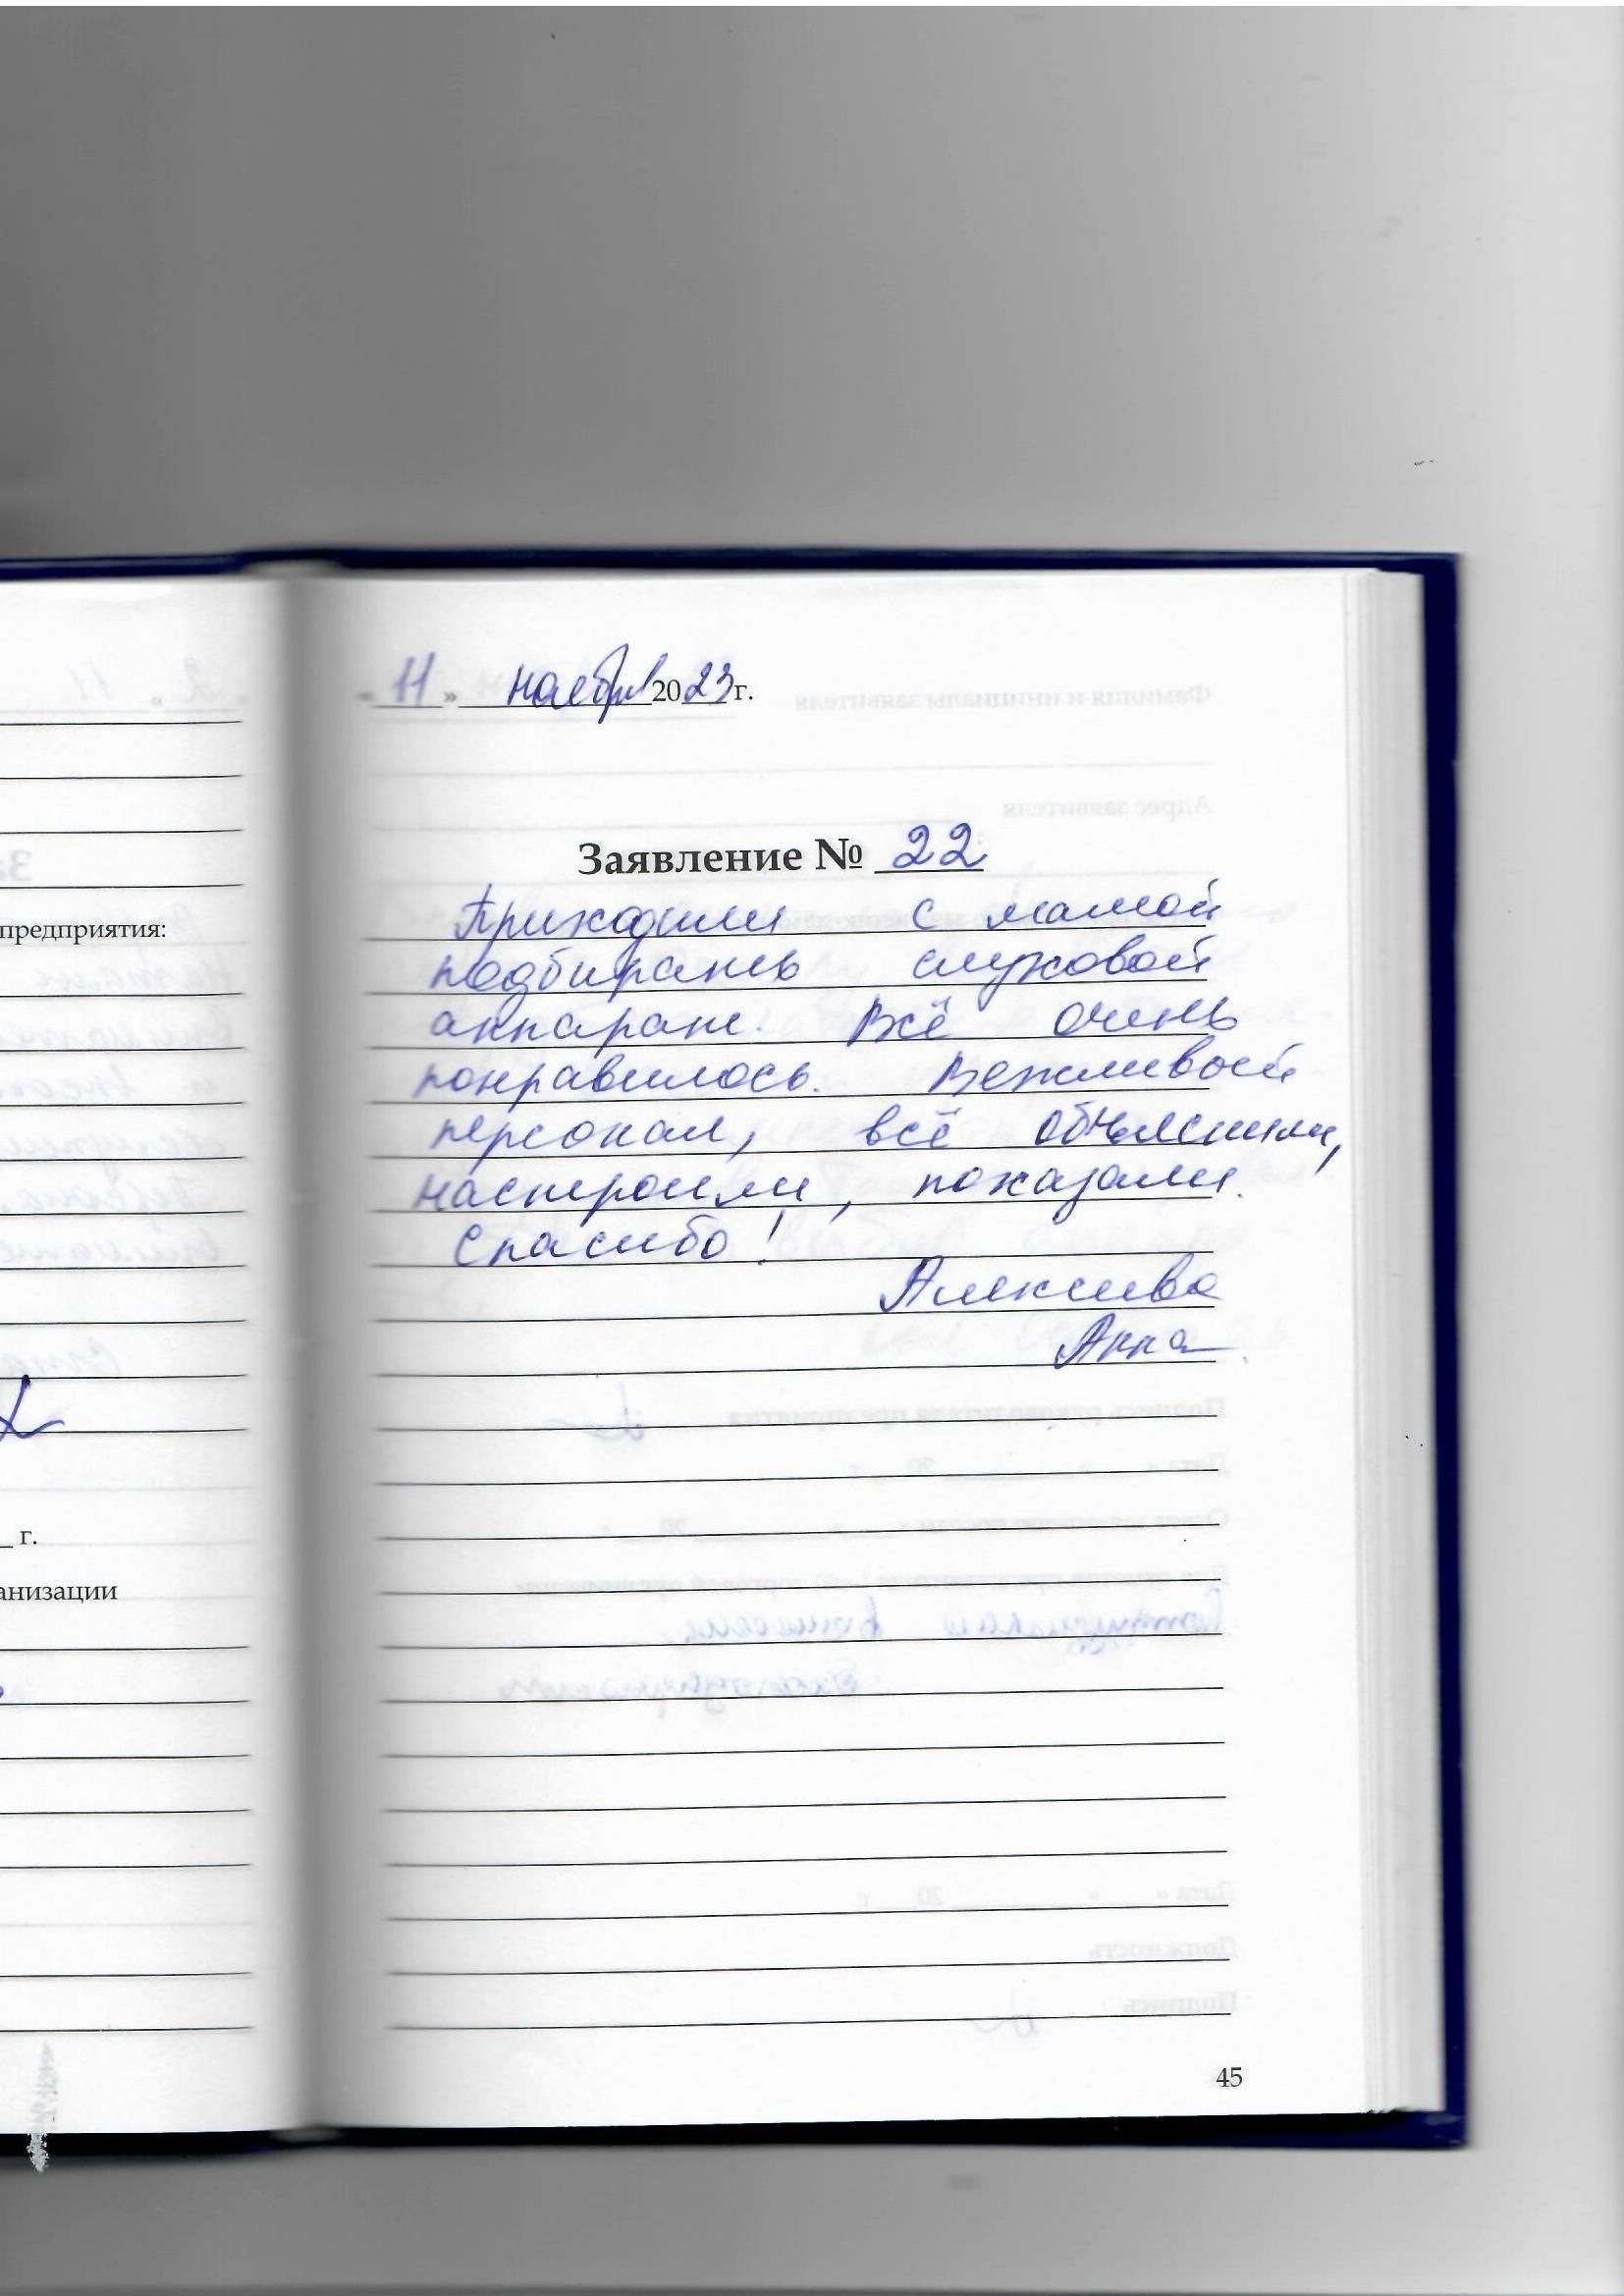 « 11 » ноября 2023 г.
Заявление № 22
Приходили с мамой
подбирать слуховой
аппарат. Всё очень
понравилось. Вежливый
персонал, всё объяснили,
настроили, показали.
Спасибо!
Анна
предприятия:
г.
анизации
45